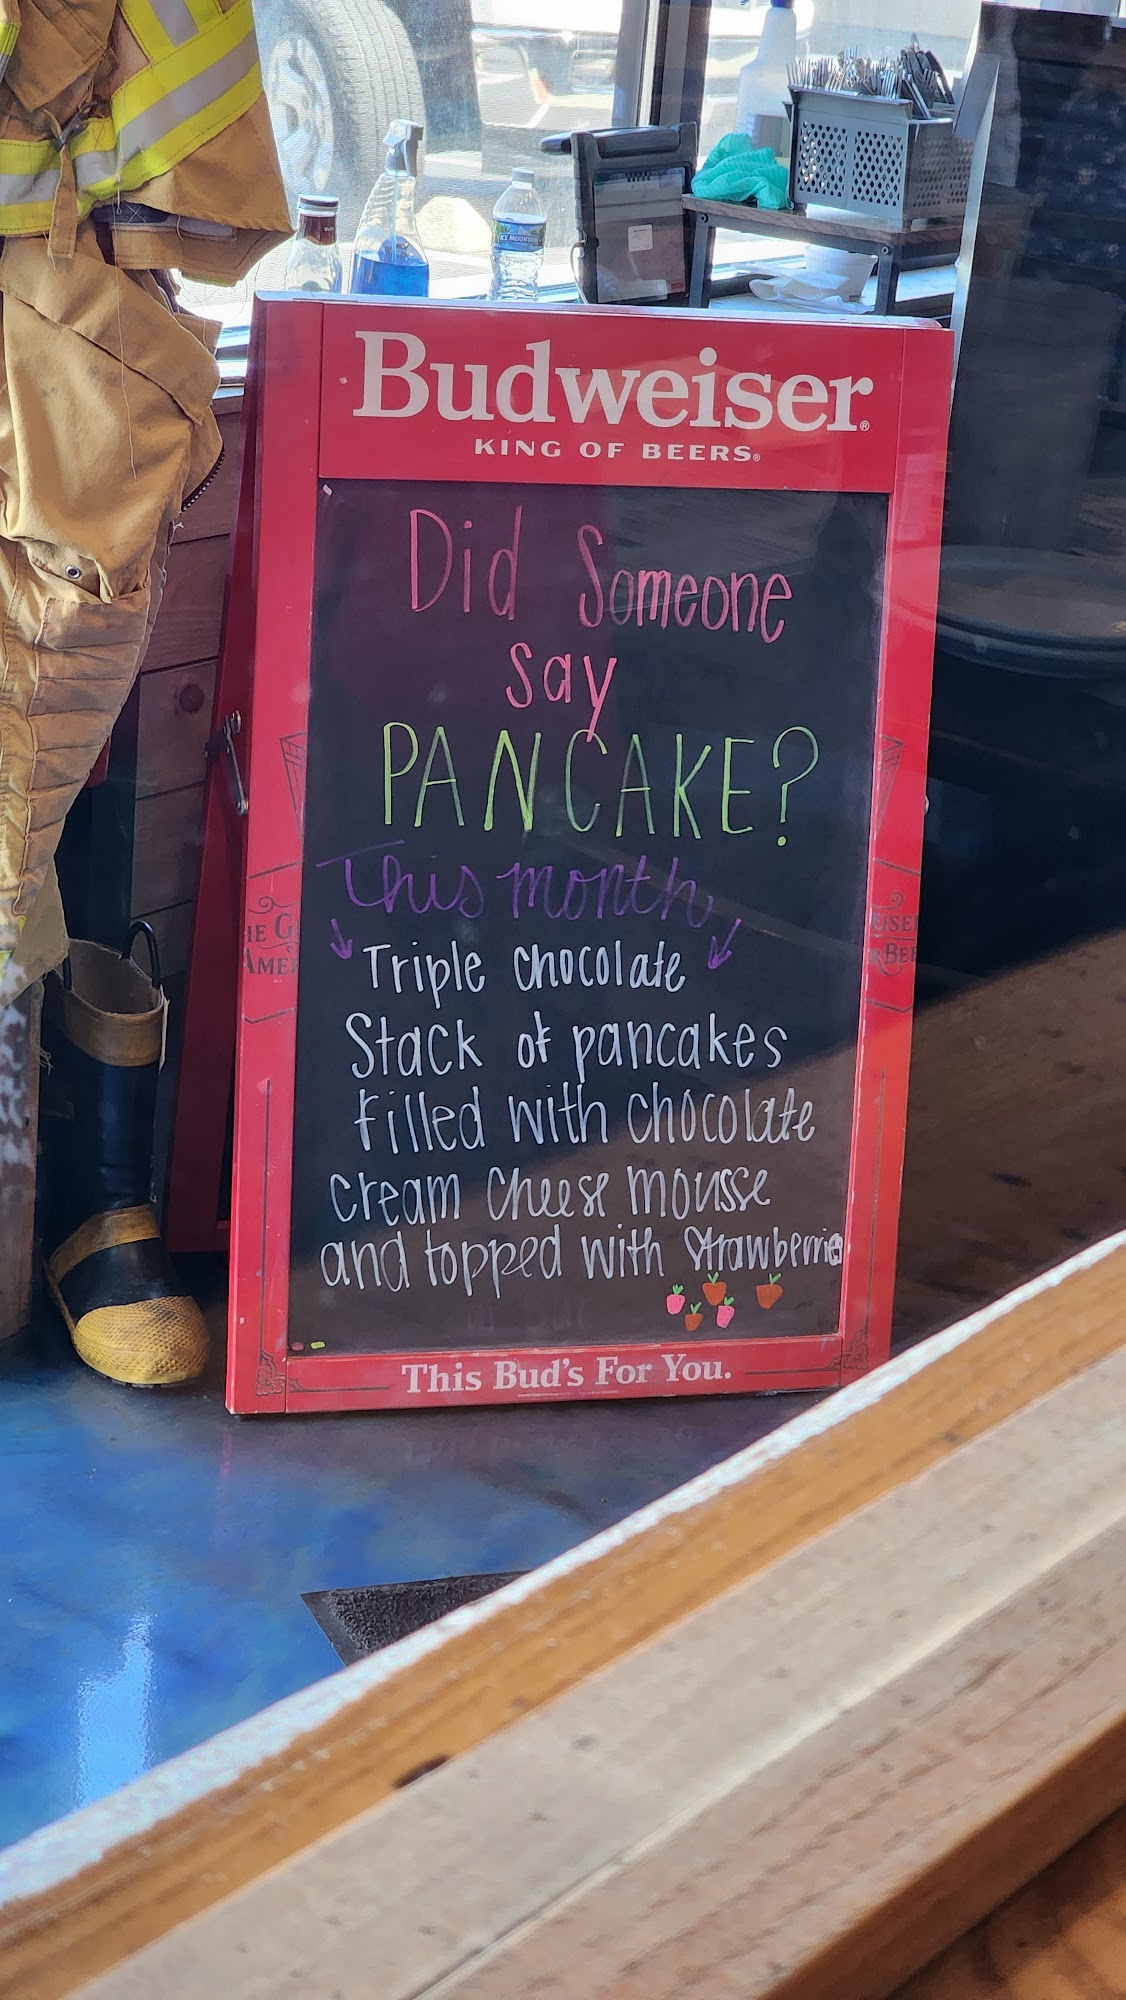 ICE MOUNTAIN
Budweiser®
KING OF BEERS®
Did Someone
say
PANCAKE?
This month
Triple chocolate
Stack of pancakes
filled with chocolate
cream cheese mousse
and topped with strawberries
This Bud's For You.